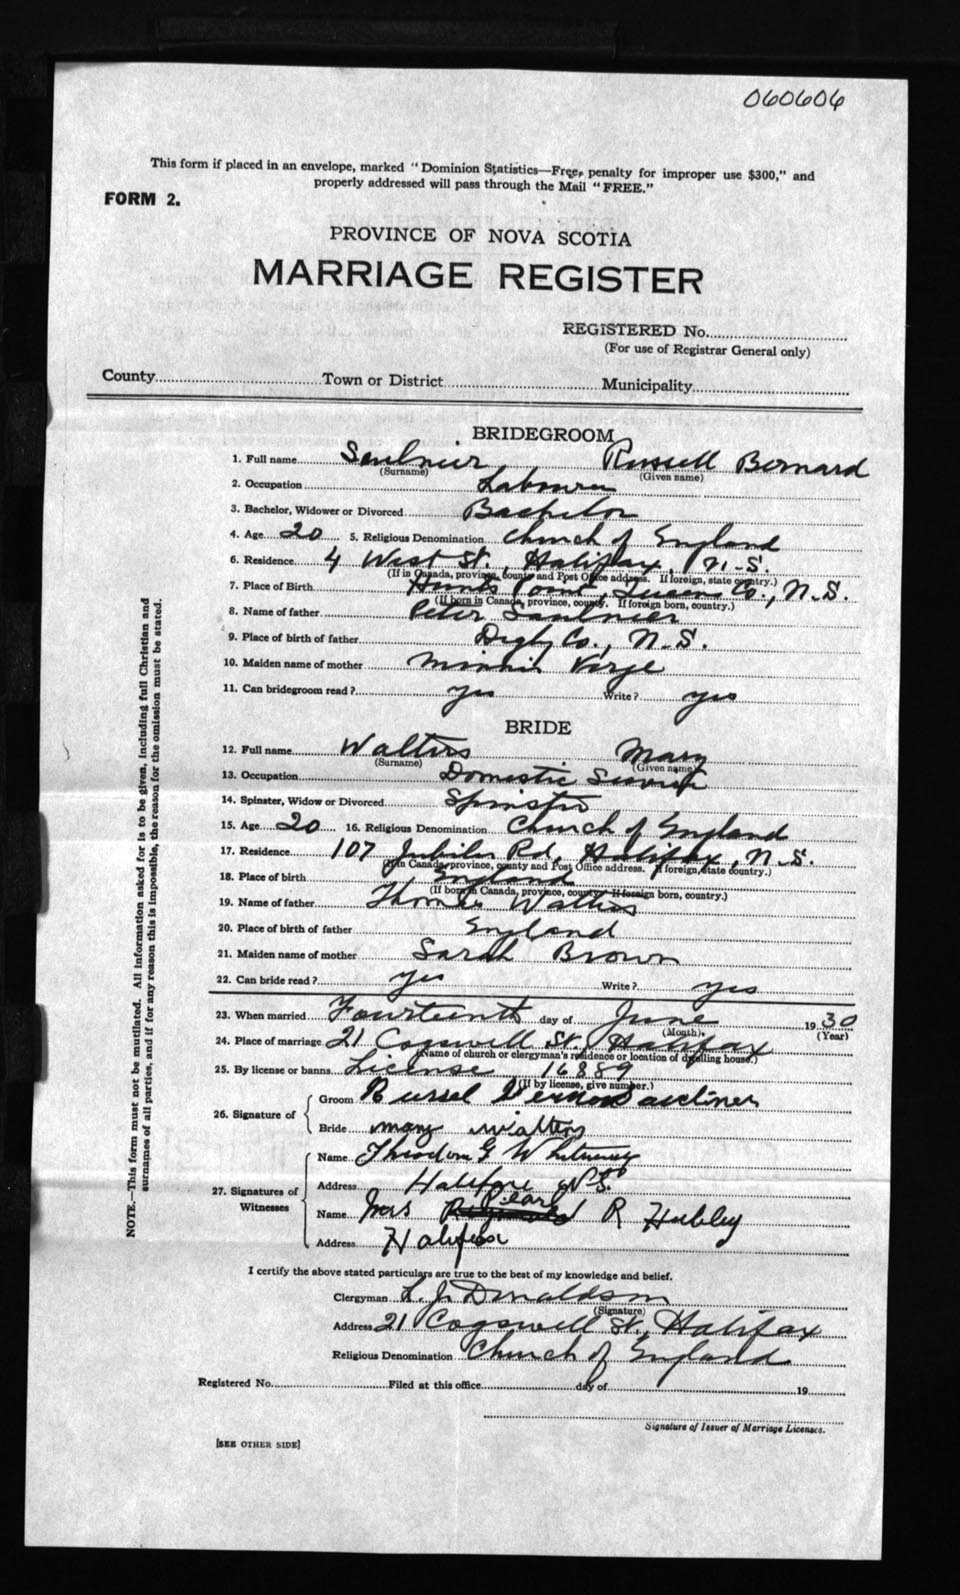 060606
This form if placed in an envelope, marked "Dominion Statistics—Free, penalty for improper use $300," and
properly addressed will pass through the Mail "FREE."
FORM 2.
PROVINCE OF NOVA SCOTIA
MARRIAGE REGISTER
REGISTERED No.
(For use of Registrar General only)
County Town or District Municipality
BRIDEGROOM
1. Full name Saulnier Russell Bernard
(Surname) (Given name)
2. Occupation Labourer
3. Bachelor, Widower or Divorced Bachelor
4. Age 20 5. Religious Denomination Church of England
6. Residence 4 West St., Halifax, N.S.
(If in Canada, province, county and Post Office address. If foreign, state country.)
7. Place of Birth Hunts Point, Queens Co., N.S.
(If born in Canada, province, county. If foreign born, country.)
8. Name of father Peter Saulnier
9. Place of birth of father Digby Co., N.S.
10. Maiden name of mother Minnie
11. Can bridegroom read? yes Write? yes
BRIDE
12. Full name Walters Mary
(Surname) (Given name)
13. Occupation Domestic Servant
14. Spinster, Widow or Divorced Spinster
15. Age 20 16. Religious Denomination Church of England
17. Residence 107 Jubilee Rd, Halifax, N.S.
(If in Canada, province, county and Post Office address. If foreign, state country.)
18. Place of birth England
(If born in Canada, province, county. If foreign born, country.)
19. Name of father Thomas Walters
20. Place of birth of father England
21. Maiden name of mother Sarah Brown
22. Can bride read? yes Write? yes
23. When married Fourteenth day of June 1930
(Month). (Year)
24. Place of marriage 21 Cogswell St., Halifax
(Name of church or clergyman's residence or location of dwelling house.)
25. By license or banns License 16889
(If by license, give number.)
26. Signature of Groom Russel
Bride mary walters
27. Signatures of Witnesses Name Theodore G Whitney
Address Halifax N S
Name Mrs Pearl R Hubley
Address Halifax
I certify the above stated particulars are true to the best of my knowledge and belief.
Clergyman L. J. Donaldson
(Signature)
Address 21 Cogswell St., Halifax
Religious Denomination Church of England
Registered No. Filed at this office day of 19
Signature of Issuer of Marriage Licenses.
[SEE OTHER SIDE]
NOTE.—This form must not be mutilated. All information asked for is to be given, including full Christian and
surnames of all parties, and if for any reason this is impossible, the reason for the omission must be stated.